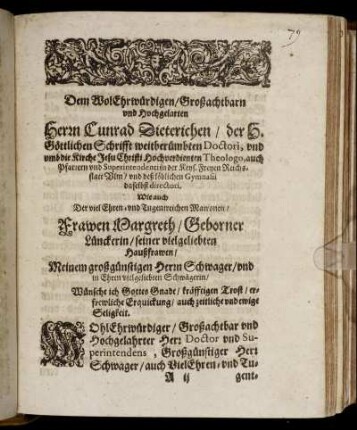 79
Dem WolEhrwürdigen/Großachtbarn
vnd Hochgelarten
Herrn Cunrad Dieterichen/ der H.
Göttlichen Schrifft weitberümbten Doctori, vnd
vmb die Kirche Jesu Christi Hochverdienten Theologo, auch
Pfarrern vnd Superintendenten der Keys. Freyen Reichs-
statt Vlm/ vnd deß löblichen Gymnasii
daselbst directori.
Wie auch
Der viel Ehren- vnd Tugentreichen Matronen/
Frawen Margreth/ Geborner
Lünckerin/ seiner vielgeliebten
Haußfrawen/
Meinem großgünstigen Herrn Schwager/ vnd
in Ehren vielgeliebten Schwägerin/
Wünsche ich Gottes Gnade/ kräfftigen Trost/ er-
frewliche Erquickung/ auch zeitliche vnd ewige
Seligkeit.
WOhlEhrwürdiger/ Großachtbar vnd
Hochgelahrter Herr Doctor vnd Su-
perintendens, Großgünstiger Herr
Schwager/ auch VielEhren- vnd Tu-
A ij gent-